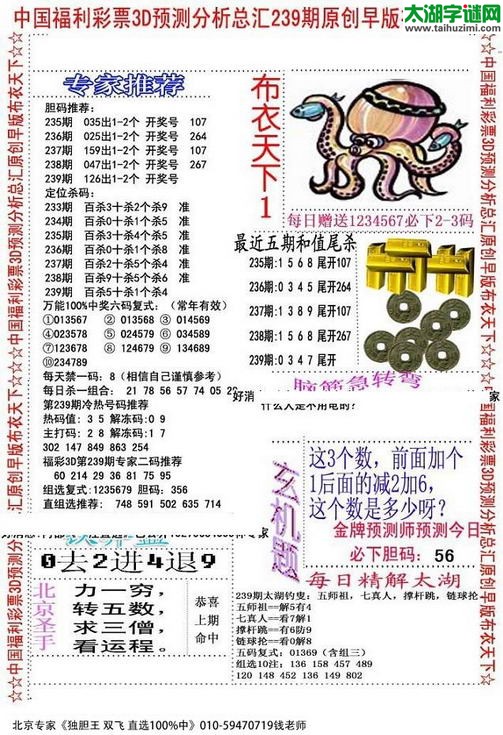 中国福利彩票3D预测分析总汇239期原创早版
太湖字谜网
www.taihuzimi.com
☆☆中国福利彩票3D预测分析总汇原创早版布衣天下☆☆
专家推荐
胆码推荐:
235期 035出1-2个 开奖号 107
236期 025出1-2个 开奖号 264
237期 159出1-2个 开奖号 107
238期 047出1-2个 开奖号 267
239期 126出1-2个 开奖号
定位杀码:
233期 百杀3十杀2个杀9 准
234期 百杀5十杀6个杀3 准
235期 百杀3十杀4个杀6 准
236期 百杀0十杀1个杀8 准
237期 百杀2十杀5个杀4 准
238期 百杀0十杀5个杀6 准
239期 百杀5十杀1个杀4
万能100%中奖六码复式:(常年有效)
①013567 ②013568 ③014569
④023578 ⑤024579 ⑥034589
⑦123678 ⑧124679 ⑨134689
⑩234789
每天禁一码:8(相信自己谨慎参考)
每日杀一组合: 21 78 56 57 74 05
第239期冷热号码推荐
热码值:3 5 解冻码:0 9
主打码:2 8 解冻码:1 7
302 147 849 863 254
福彩3D第239期专家二码推荐
60 214 29 36 81 75 95
组选复式:1235679 胆码:356
直组选推荐: 748 591 502 635 714
布衣天下1
每日赠送1234567必下2-3码
最近五期和值尾杀
235期:1 5 6 8 尾开107
236期:0 3 4 7 尾开264
237期:1 3 8 9 尾开107
238期:1 5 6 8 尾开267
239期:0 3 4 7 尾开
脑筋急转弯
好消
家
什么人是不用电的?
玄机题
这3个数,前面加个
1后面的减2加6,
这个数是多少呀?
金牌预测师预测今日
必下胆码: 56
0去2进4退9
北京圣手
力一穷,
转五数,
求三僧,
看运程。
恭喜
上期
命中
每日精解太湖
239期太湖钓叟:五师祖,七真人,撑杆跳,链球抡
五师祖==解5有4
七真人==看7解1
撑杆跳==有6防9
链球抡==看0解8
五码复式:01369(含组三)
组选10注:136 158 457 489
120 148 452 136 149 802
北京专家《独胆王 双飞 直选100%中》010-59470719钱老师